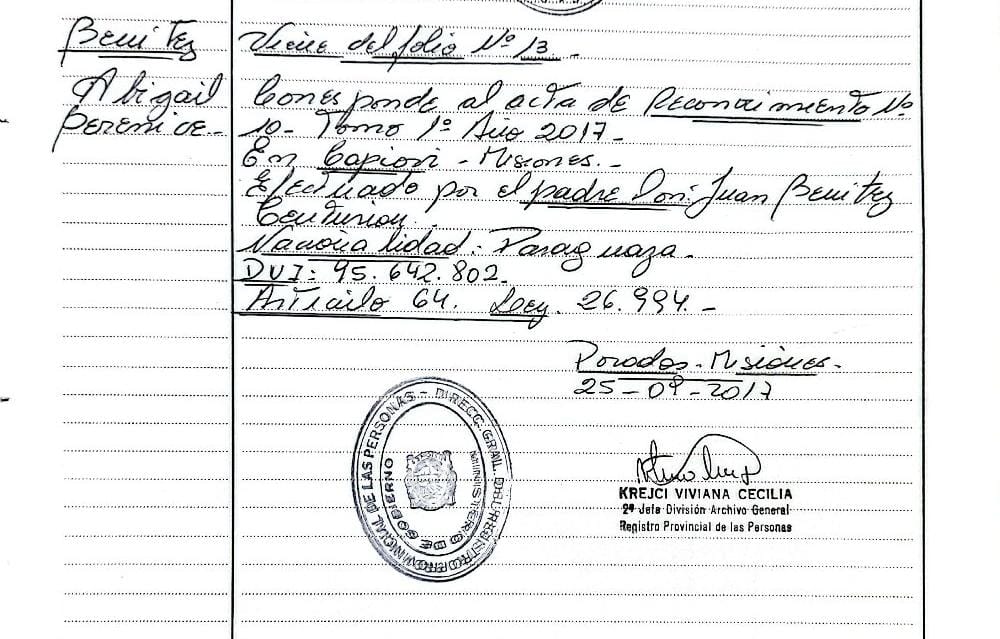 Benitez
Abigail
Berenice.-
Viene del folio Nº 13.-
Corresponde al acta de Reconocimiento Nº
10- Tomo 1º Año 2017.-
En Capiovi - Misiones.-
Efectuado por el padre Don: Juan Benitez
Centurion.
Nacionalidad: Paraguaya.
DUI: 95.642.802.
Articulo 64. Ley. 26.994.-
Posadas. Misiones.
25-09-2017
DIRECC. GRAL. DEL REGISTRO PROVINCIAL DE LAS PERSONAS -
MINISTERIO DE GOBIERNO
KREJCI VIVIANA CECILIA
2ª Jefa División Archivo General
Registro Provincial de las Personas